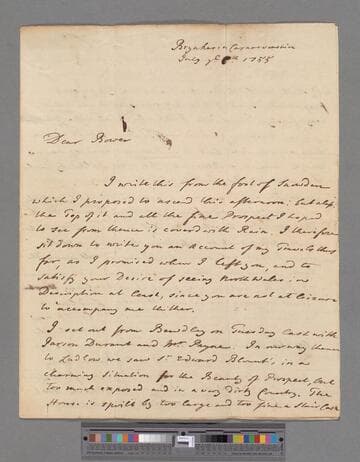 Brynker in Carnarvonshire
July ye 6th 1755
Dear Bower
I write this from the foot of Snowdon
which I proposed to ascend this afternoon; but alas!
the Top of it and all the fine Prospect I hoped
to see from thence is cover'd with Rain. I therefore
sit down to write you an Account of my Travels thus
far, as I promised when I left you, and to
satisfy your Desire of seeing North Wales in
Description at least, since you are not at leisure
to accompany me thither.
I set out from Bewdley on Tuesday last with
Parson Durant and Mr. Payne. In our way thence
to Ludlow we saw Sr. Edward Blount's, in a
charming situation for the Beauty of Prospect, but
too much exposed and in a very dirty Country. The
House is spoilt by too large and too fine a Stair Case